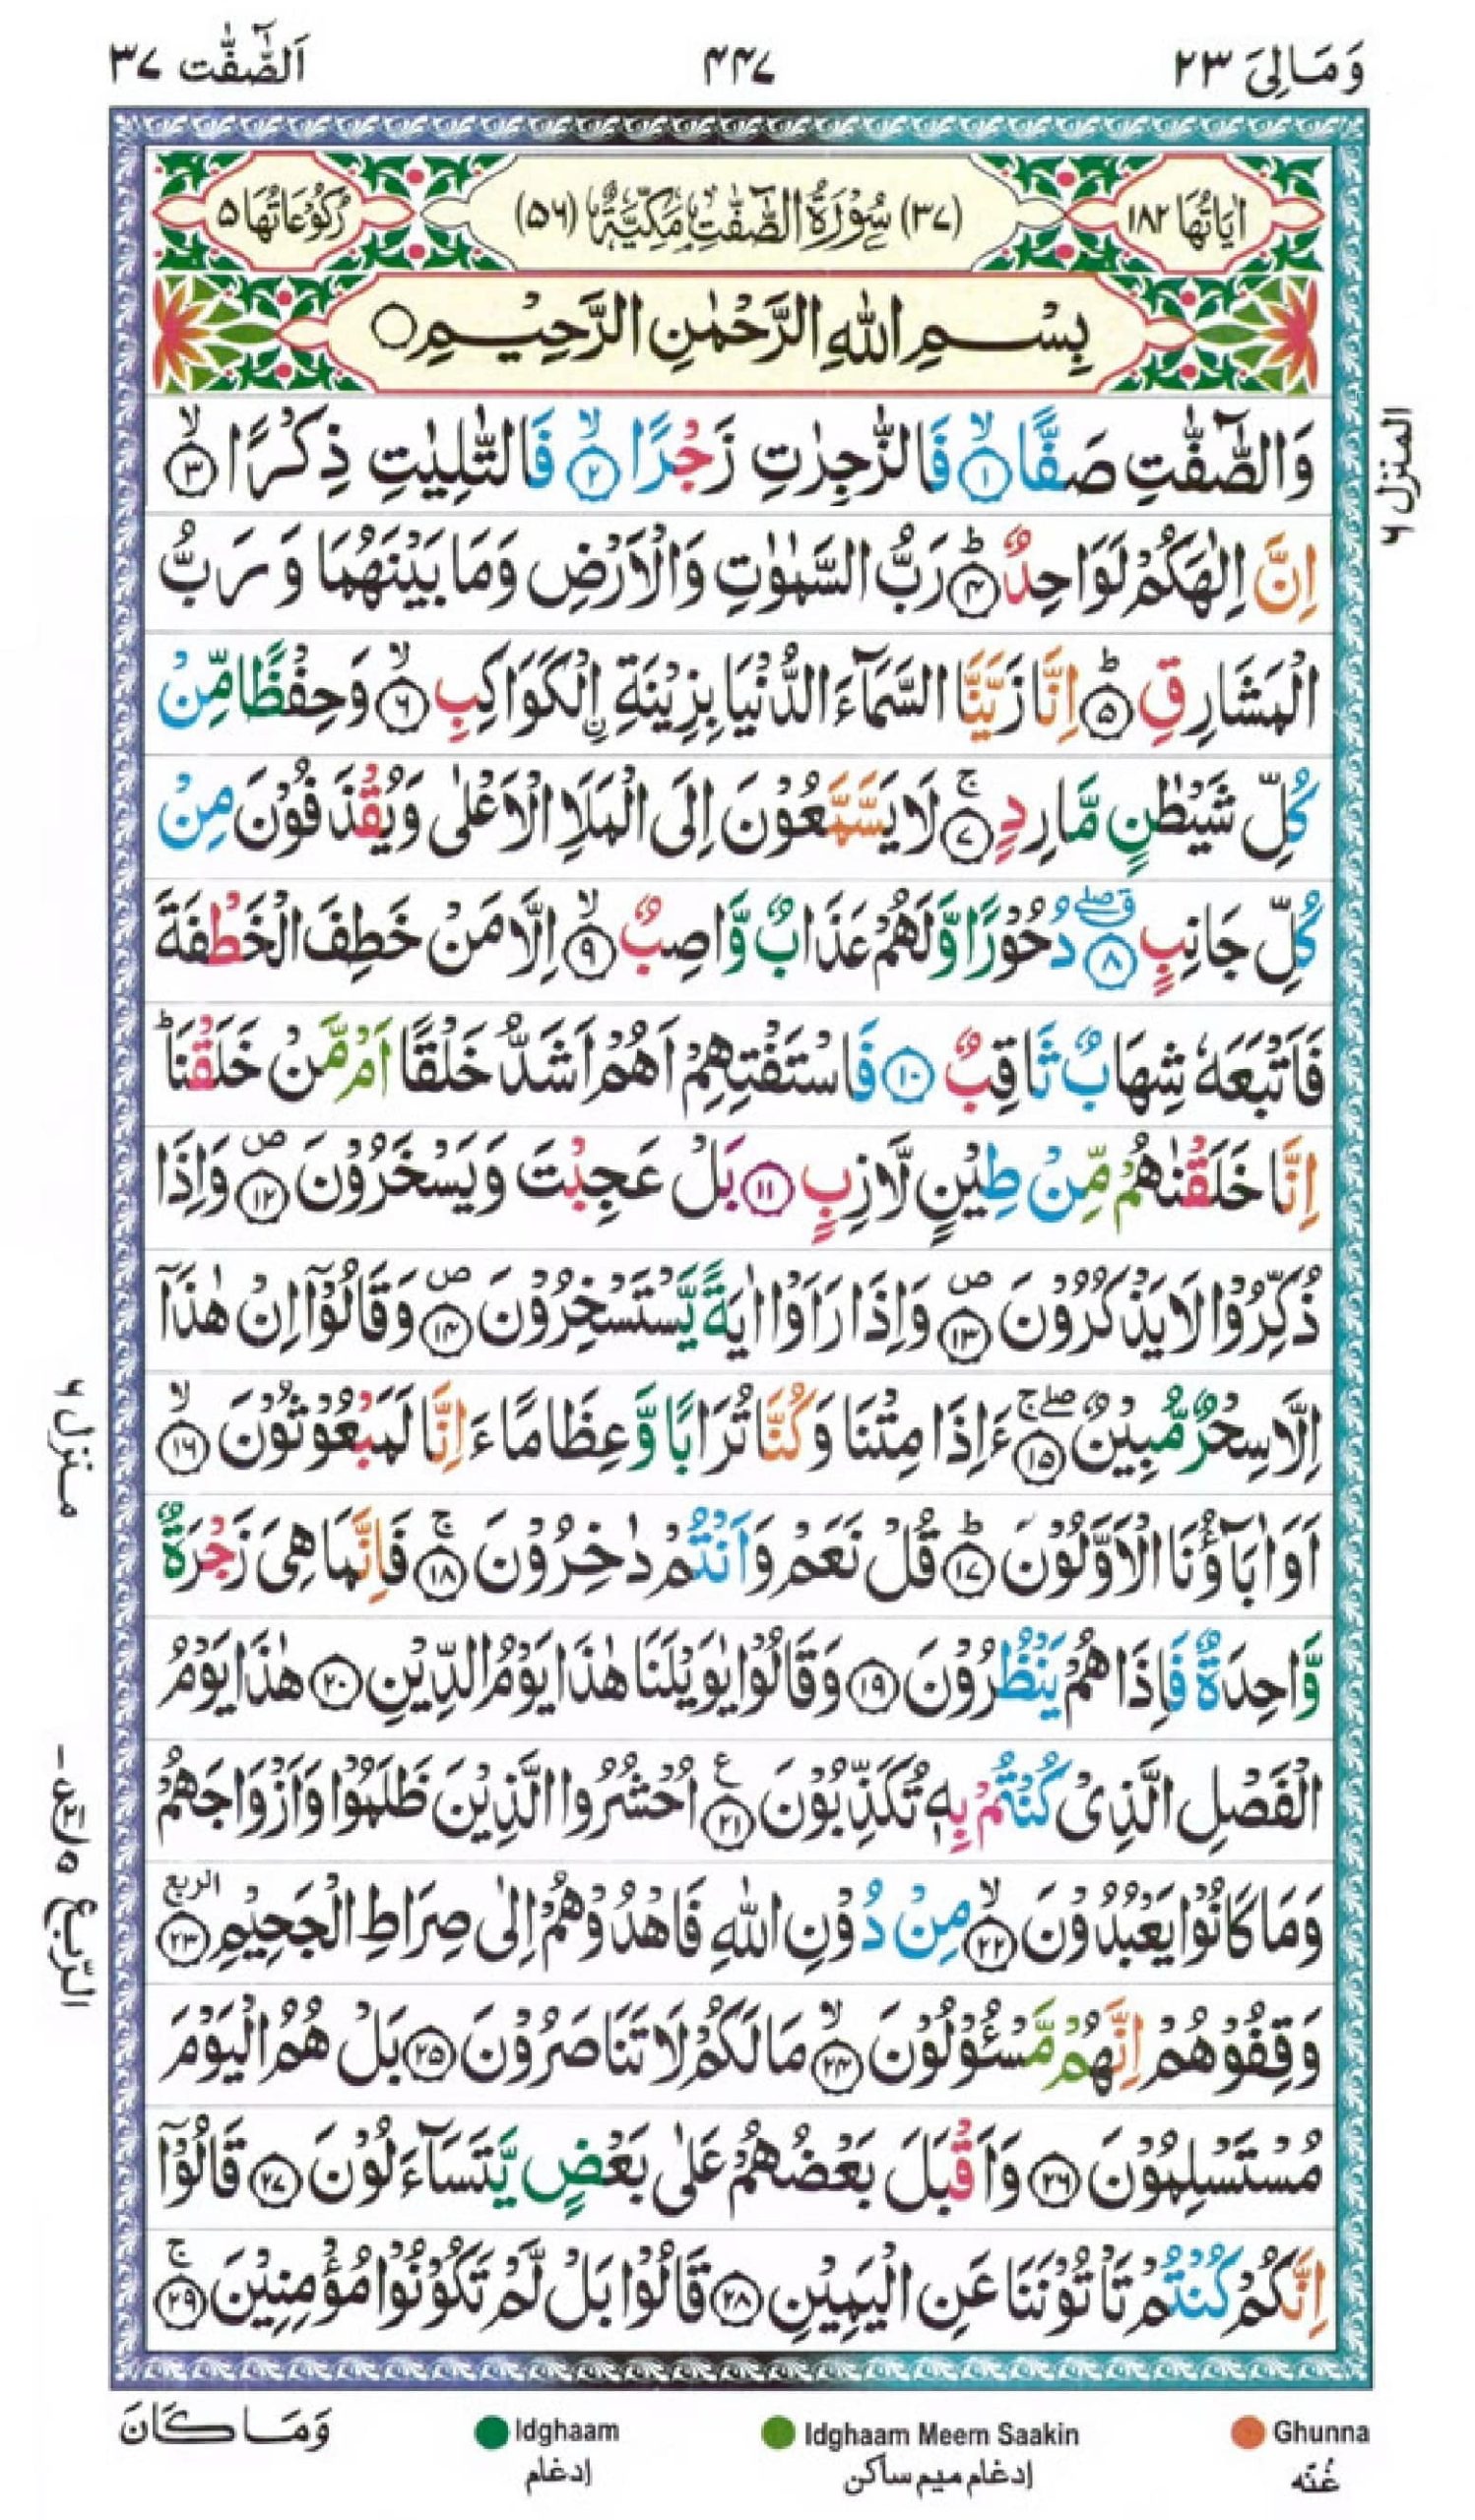 وَمَالِىَ ٢٣
٤٤٧
اَلصّٰٓفّٰت ٣٧
اٰيَاتُهَا ١٨٢
(٣٧) سُوْرَةُ الصّٰٓفّٰتِ مَكِّيَّةٌ (٥٦)
رُكُوْعَاتُهَا ٥
بِسْمِ اللهِ الرَّحْمٰنِ الرَّحِيْمِ ○
وَالصّٰٓفّٰتِ صَفًّا ۙ﴿١﴾ فَالزّٰجِرٰتِ زَجْرًا ۙ﴿٢﴾ فَالتّٰلِيٰتِ ذِكْرًا ۙ﴿٣﴾
اِنَّ اِلٰهَكُمْ لَوَاحِدٌ ؕ﴿٤﴾ رَبُّ السَّمٰوٰتِ وَالْاَرْضِ وَمَا بَيْنَهُمَا وَ رَبُّ
الْمَشَارِقِ ؕ﴿٥﴾ اِنَّا زَيَّنَّا السَّمَآءَ الدُّنْيَا بِزِيْنَةِ ۨالْكَوَاكِبِ ۙ﴿٦﴾ وَحِفْظًا مِّنْ
كُلِّ شَيْطٰنٍ مَّارِدٍ ۚ﴿٧﴾ لَا يَسَّمَّعُوْنَ اِلَى الْمَلَاِ الْاَعْلٰى وَيُقْذَفُوْنَ مِنْ
كُلِّ جَانِبٍ ۖق﴿٨﴾ دُحُوْرًا وَّلَهُمْ عَذَابٌ وَّاصِبٌ ۙ﴿٩﴾ اِلَّا مَنْ خَطِفَ الْخَطْفَةَ
فَاَتْبَعَهٗ شِهَابٌ ثَاقِبٌ ﴿١٠﴾ فَاسْتَفْتِهِمْ اَهُمْ اَشَدُّ خَلْقًا اَمْ مَّنْ خَلَقْنَا ؕ
اِنَّا خَلَقْنٰهُمْ مِّنْ طِيْنٍ لَّازِبٍ ﴿١١﴾ بَلْ عَجِبْتَ وَيَسْخَرُوْنَ ۪﴿١٢﴾ وَاِذَا
ذُكِّرُوْا لَا يَذْكُرُوْنَ ۪﴿١٣﴾ وَاِذَا رَاَوْا اٰيَةً يَّسْتَسْخِرُوْنَ ۪﴿١٤﴾ وَقَالُوْٓا اِنْ هٰذَآ
اِلَّا سِحْرٌ مُّبِيْنٌ ۖۚ﴿١٥﴾ ءَاِذَا مِتْنَا وَكُنَّا تُرَابًا وَّعِظَامًا ءَاِنَّا لَمَبْعُوْثُوْنَ ۙ﴿١٦﴾
اَوَاٰبَآؤُنَا الْاَوَّلُوْنَ ؕ﴿١٧﴾ قُلْ نَعَمْ وَاَنْتُمْ دٰخِرُوْنَ ۚ﴿١٨﴾ فَاِنَّمَا هِىَ زَجْرَةٌ
وَّاحِدَةٌ فَاِذَا هُمْ يَنْظُرُوْنَ ﴿١٩﴾ وَقَالُوْا يٰوَيْلَنَا هٰذَا يَوْمُ الدِّيْنِ ﴿٢٠﴾ هٰذَا يَوْمُ
الْفَصْلِ الَّذِىْ كُنْتُمْ بِهٖ تُكَذِّبُوْنَ ع﴿٢١﴾ اُحْشُرُوا الَّذِيْنَ ظَلَمُوْا وَاَزْوَاجَهُمْ
وَمَا كَانُوْا يَعْبُدُوْنَ ۙ﴿٢٢﴾ مِنْ دُوْنِ اللهِ فَاهْدُوْهُمْ اِلٰى صِرَاطِ الْجَحِيْمِ الربع﴿٢٣﴾
وَقِفُوْهُمْ اِنَّهُمْ مَّسْئُوْلُوْنَ ۙ﴿٢٤﴾ مَا لَكُمْ لَا تَنَاصَرُوْنَ ﴿٢٥﴾ بَلْ هُمُ الْيَوْمَ
مُسْتَسْلِمُوْنَ ﴿٢٦﴾ وَاَقْبَلَ بَعْضُهُمْ عَلٰى بَعْضٍ يَّتَسَآءَلُوْنَ ﴿٢٧﴾ قَالُوْٓا
اِنَّكُمْ كُنْتُمْ تَاْتُوْنَنَا عَنِ الْيَمِيْنِ ﴿٢٨﴾ قَالُوْا بَلْ لَّمْ تَكُوْنُوْا مُؤْمِنِيْنَ ۚ﴿٢٩﴾
المنزل ٦
منزل ٦
الرّبع
وَمَا كَانَ
Idghaam
ادغام
Idghaam Meem Saakin
ادغام ميم ساكن
Ghunna
غُنّه